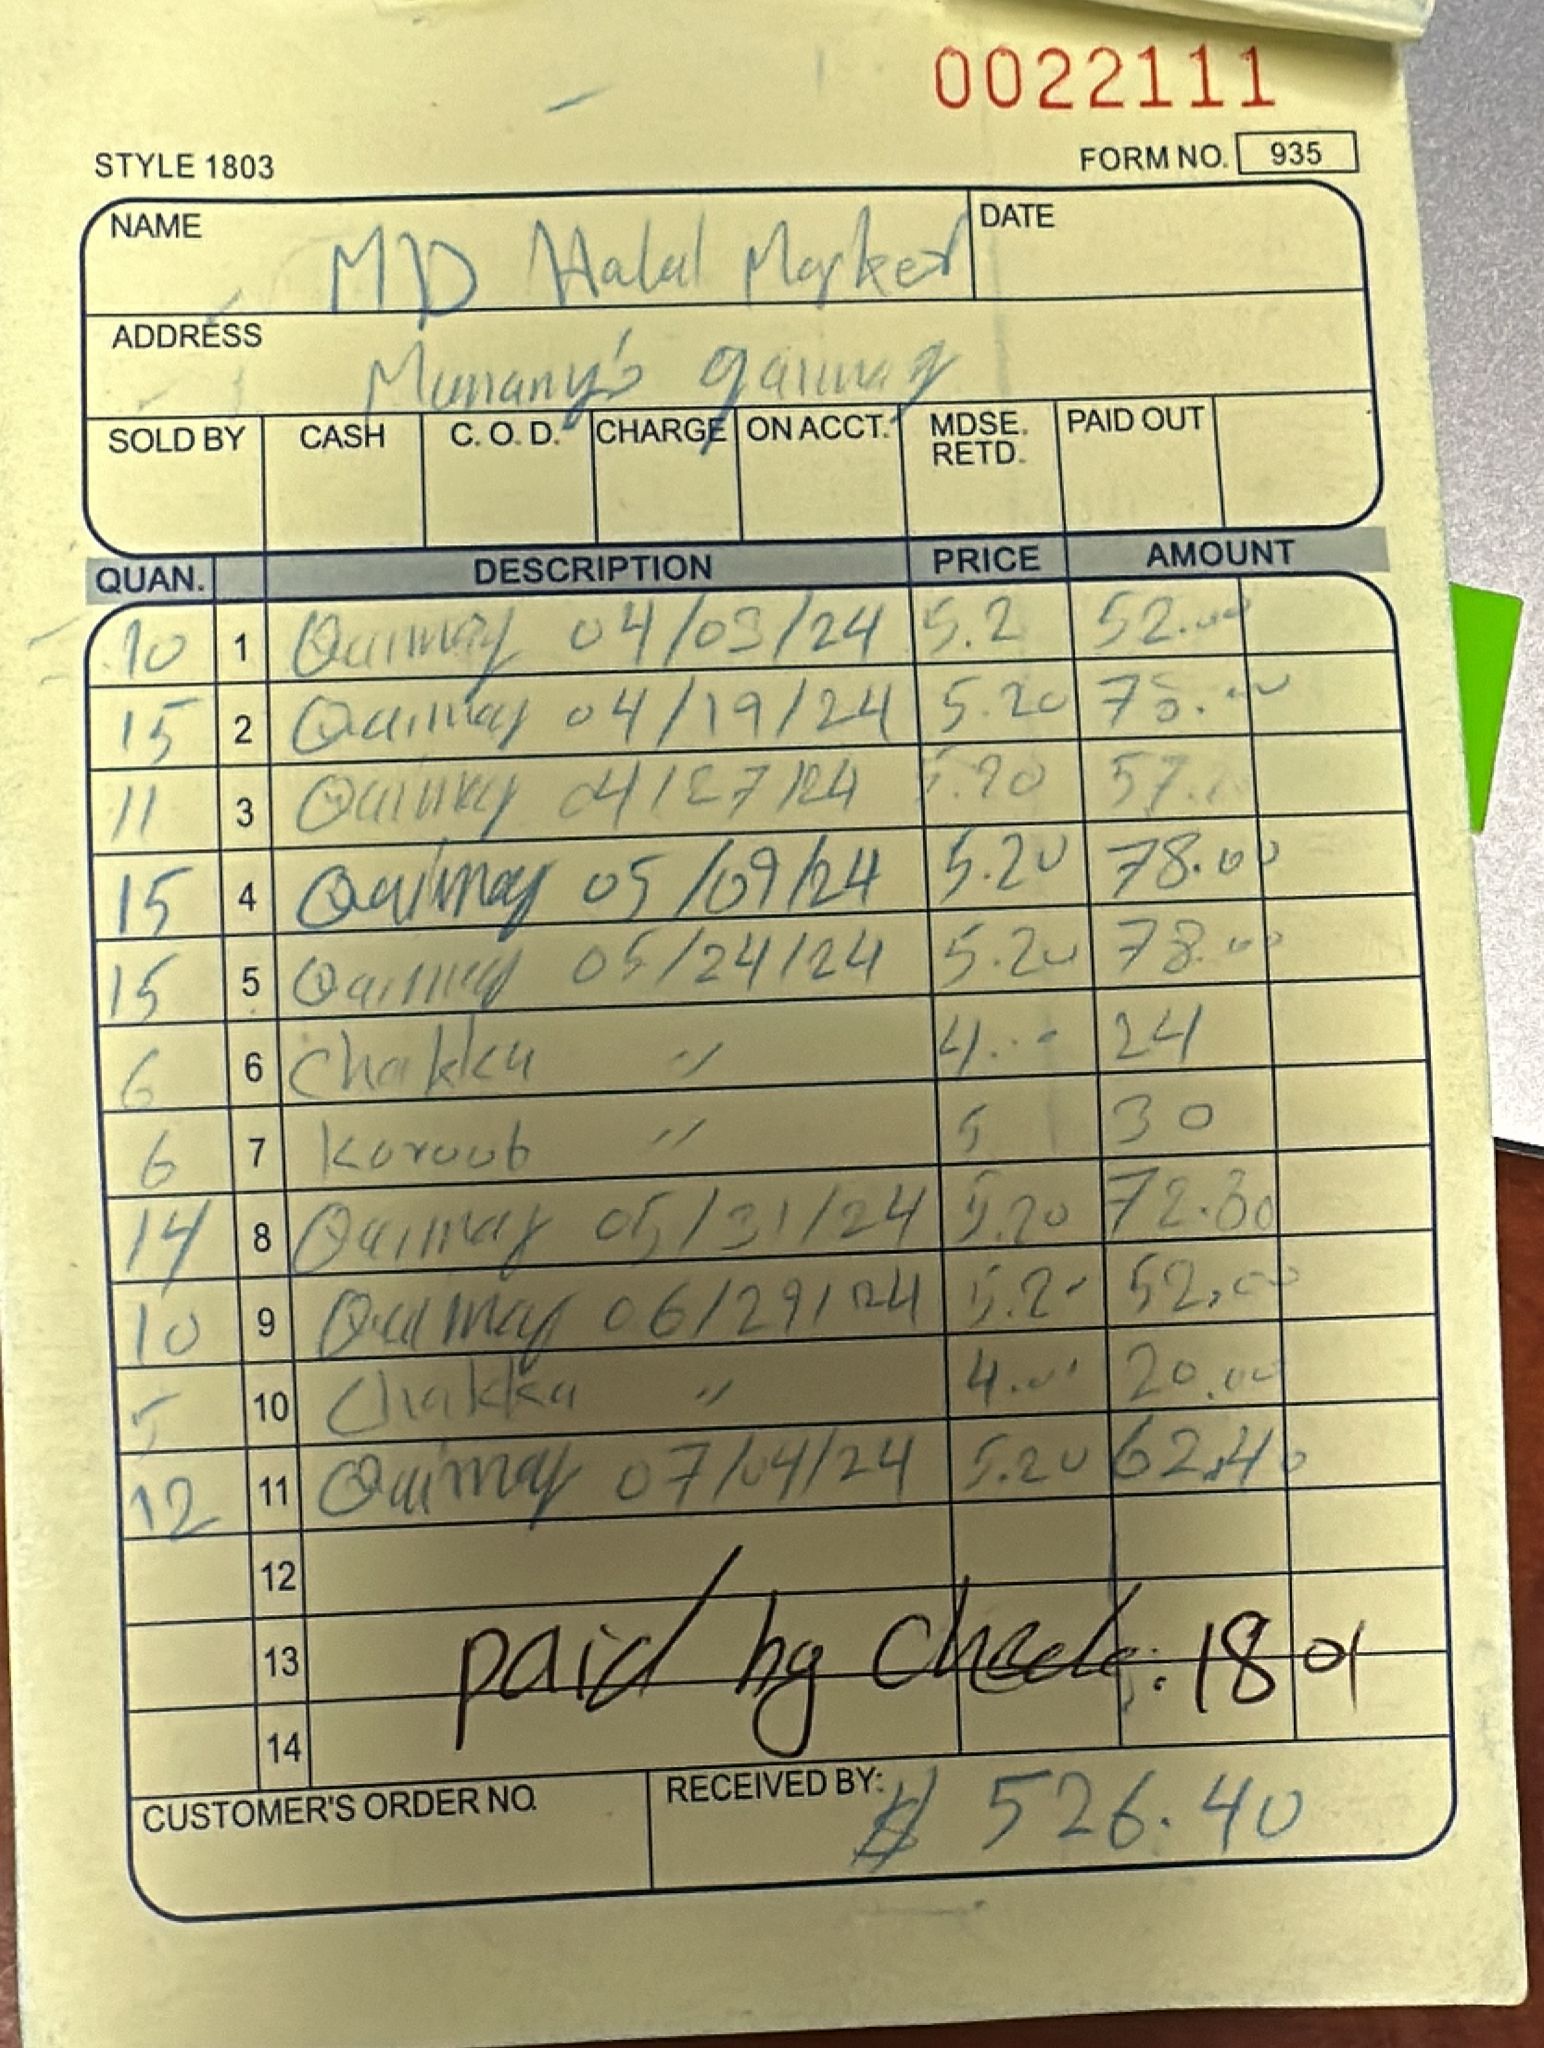 0022111
STYLE 1803 FORM NO. 935
NAME MD Halal Market DATE
ADDRESS Munany's qaimay
SOLD BY CASH C. O. D. CHARGE ON ACCT. MDSE. RETD. PAID OUT
QUAN. DESCRIPTION PRICE AMOUNT
10 1 Quimay 04/03/24 5.2 52.00
15 2 Quimay 04/19/24 5.20 78.00
11 3 Quimay 04/27/24 5.20 57.
15 4 Quimay 05/09/24 5.20 78.00
15 5 Quimay 05/24/24 5.20 78.00
6 6 Chakka " 4.-- 24
6 7 Koroob " 5 30
14 8 Quimay 05/31/24 5.20 72.80
10 9 Quimay 06/29/24 5.2- 52.00
5 10 Chakka " 4.00 20.00
12 11 Quimay 07/04/24 5.20 62.40
12
13 paid by check: 1801
14
CUSTOMER'S ORDER NO. RECEIVED BY: $ 526.40